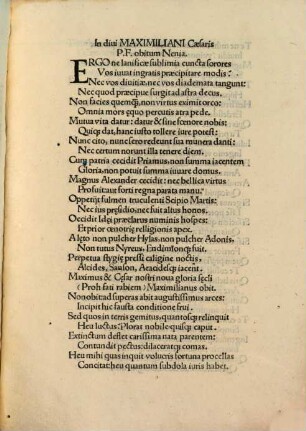 In diui MAXIMILIANI Cæsaris
P.F. obitum Nenia.
ERGO ne lanificæ sublimia cuncta sorores
Vos iuuat ingratis præcipitare modis?
Nec vos diuitiæ: nec vos diademata tangunt:
Nec quod præcipue surgit ad astra decus.
Non facies quemq̃, non virtus eximit orco:
Omnia mors equo percutis atra pede.
Mutua vita datur: datur & sine fœnore nobis:
Quiq̃ dat, hanc iusto tollere iure potest:
Nunc cito, nunc sero redeunt sua munera danti:
Nec certum norunt illa tenere diem.
Cum patria cecidit Priamus: non summa iacentem
Gloria: non potuit summa iuuare domus.
Magnus Alexander cecidit: nec bellica virtus
Profuit aut forti regna parata manu.
Oppetijt fulmen truculenti Scipio Martis:
Nec ius presidio: nec fuit altus honos.
Occidit Idq̃ præclarus numinis hospes:
Et prior cenotrijs relligionis apex.
A leto non pulcher Hylas: non pulcher Adonis,
Non tutus Nyreus: Endimionq̃ fuit.
Perpetua stygię pressi caligine noctis,
Alcides, Sauson, Aeacidesq̃ iacent.
Maximus & Cęsar nostri noua gloria sęcli
(Proh fati rabiem) Maximilianus obit.
Non obit ad superas abit augustissimus arces:
Incipit hic fausta conditione frui.
Sed quos in terris gemitus, quantosq̃ relinquit
Heu luctus: Ploras nobile quisq̃ caput.
Extinctum deflet carissima nata parentem:
Contandit pectus: dilaceratq̃ comas.
Heu mihi quas inquit volucris fortuna procellas
Concitat: heu quantum subdola iuris habet.